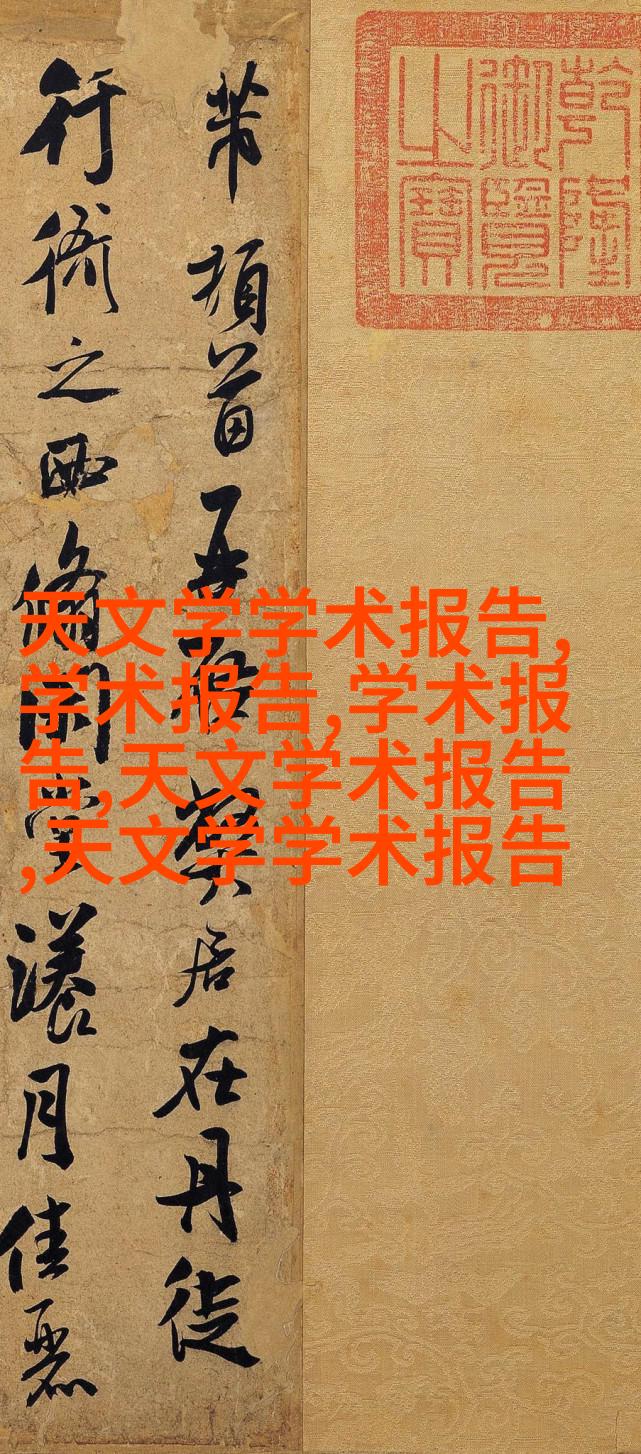 乾隆
御覽
之寶
芾頓首再啓弊居在丹徒
行衙之西翛閑堂漾月佳麗
天文学学术报告,
学术报告,学术报
告,天文学术报告
,天文学学术报告